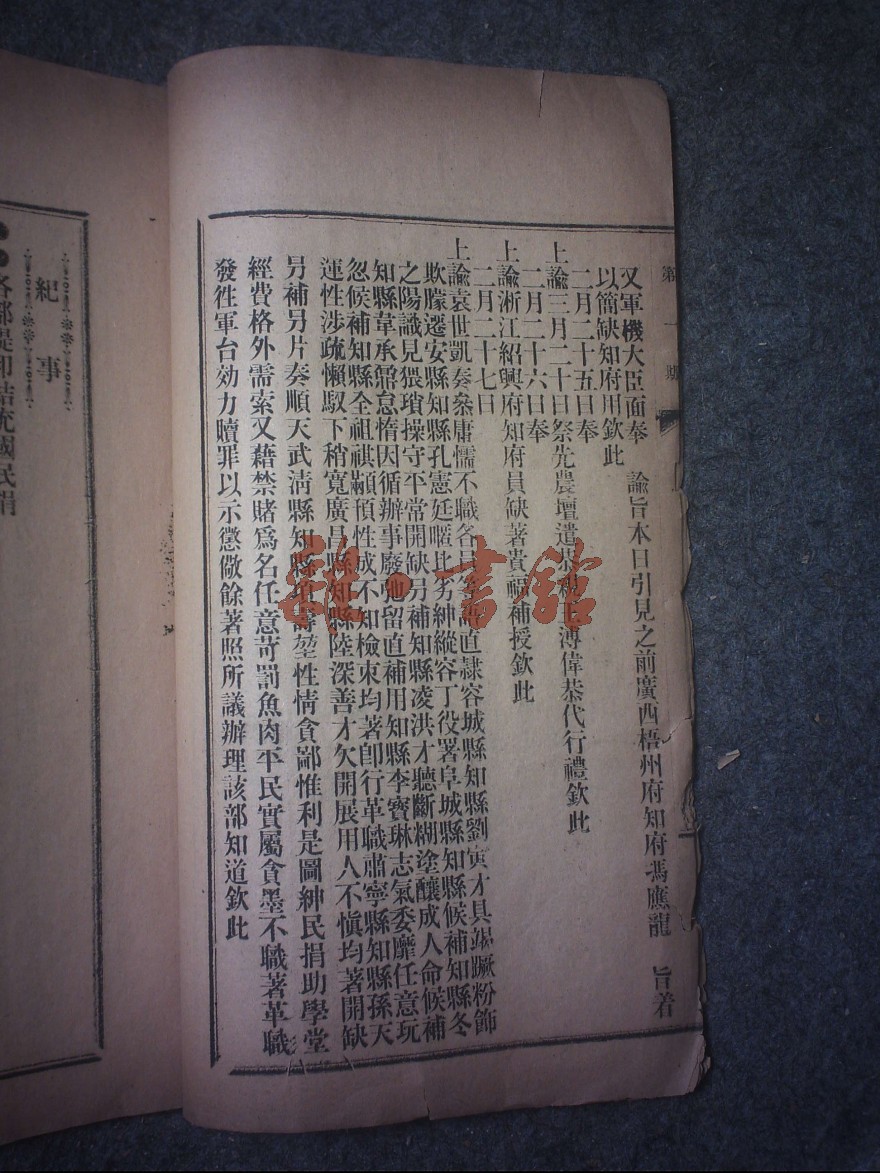 第一期
又軍機大臣面奉 諭旨本日引見之前廣西梧州府知府馮應龍 旨着
以簡缺知府用欽此
二月二十五日奉
上諭三月二十日祭先農壇遣恭親王溥偉恭代行禮欽此
二月二十六日奉
上諭浙江紹興府知府員缺著貴福補授欽此
二月二十七日
上諭袁世凱奏叅庸懦不職各員直隸容城縣知縣劉寅才具竭蹶粉飾
欺朦遷安縣知縣孔憲廷暱比劣紳縱容丁役署阜城縣知縣候補知縣冬
之陽識見猥瑣操守平常開缺另補知縣凌洪才聽斷糊塗釀成人命候補
知縣韋承鼐怠惰因循辦事廢弛留直補用知縣李寶琳志氣委靡任意玩
忽候補知縣全祖祺顢頇性成不知檢束均著卽行革職肅寧縣知縣孫天
運性涉疏懶馭下稍寬廣昌縣知縣陸深善才欠開展用人不愼均著開缺
另補另片奏順天武淸縣知縣項壽堃性情貪鄙惟利是圖紳民捐助學堂
經費格外需索又藉禁賭爲名任意苛罰魚肉平民實屬貪墨不職著革職
發徃軍台効力贖罪以示懲儆餘著照所議辦理該部知道欽此
紀事
各部提印結充國民捐
雜·書館